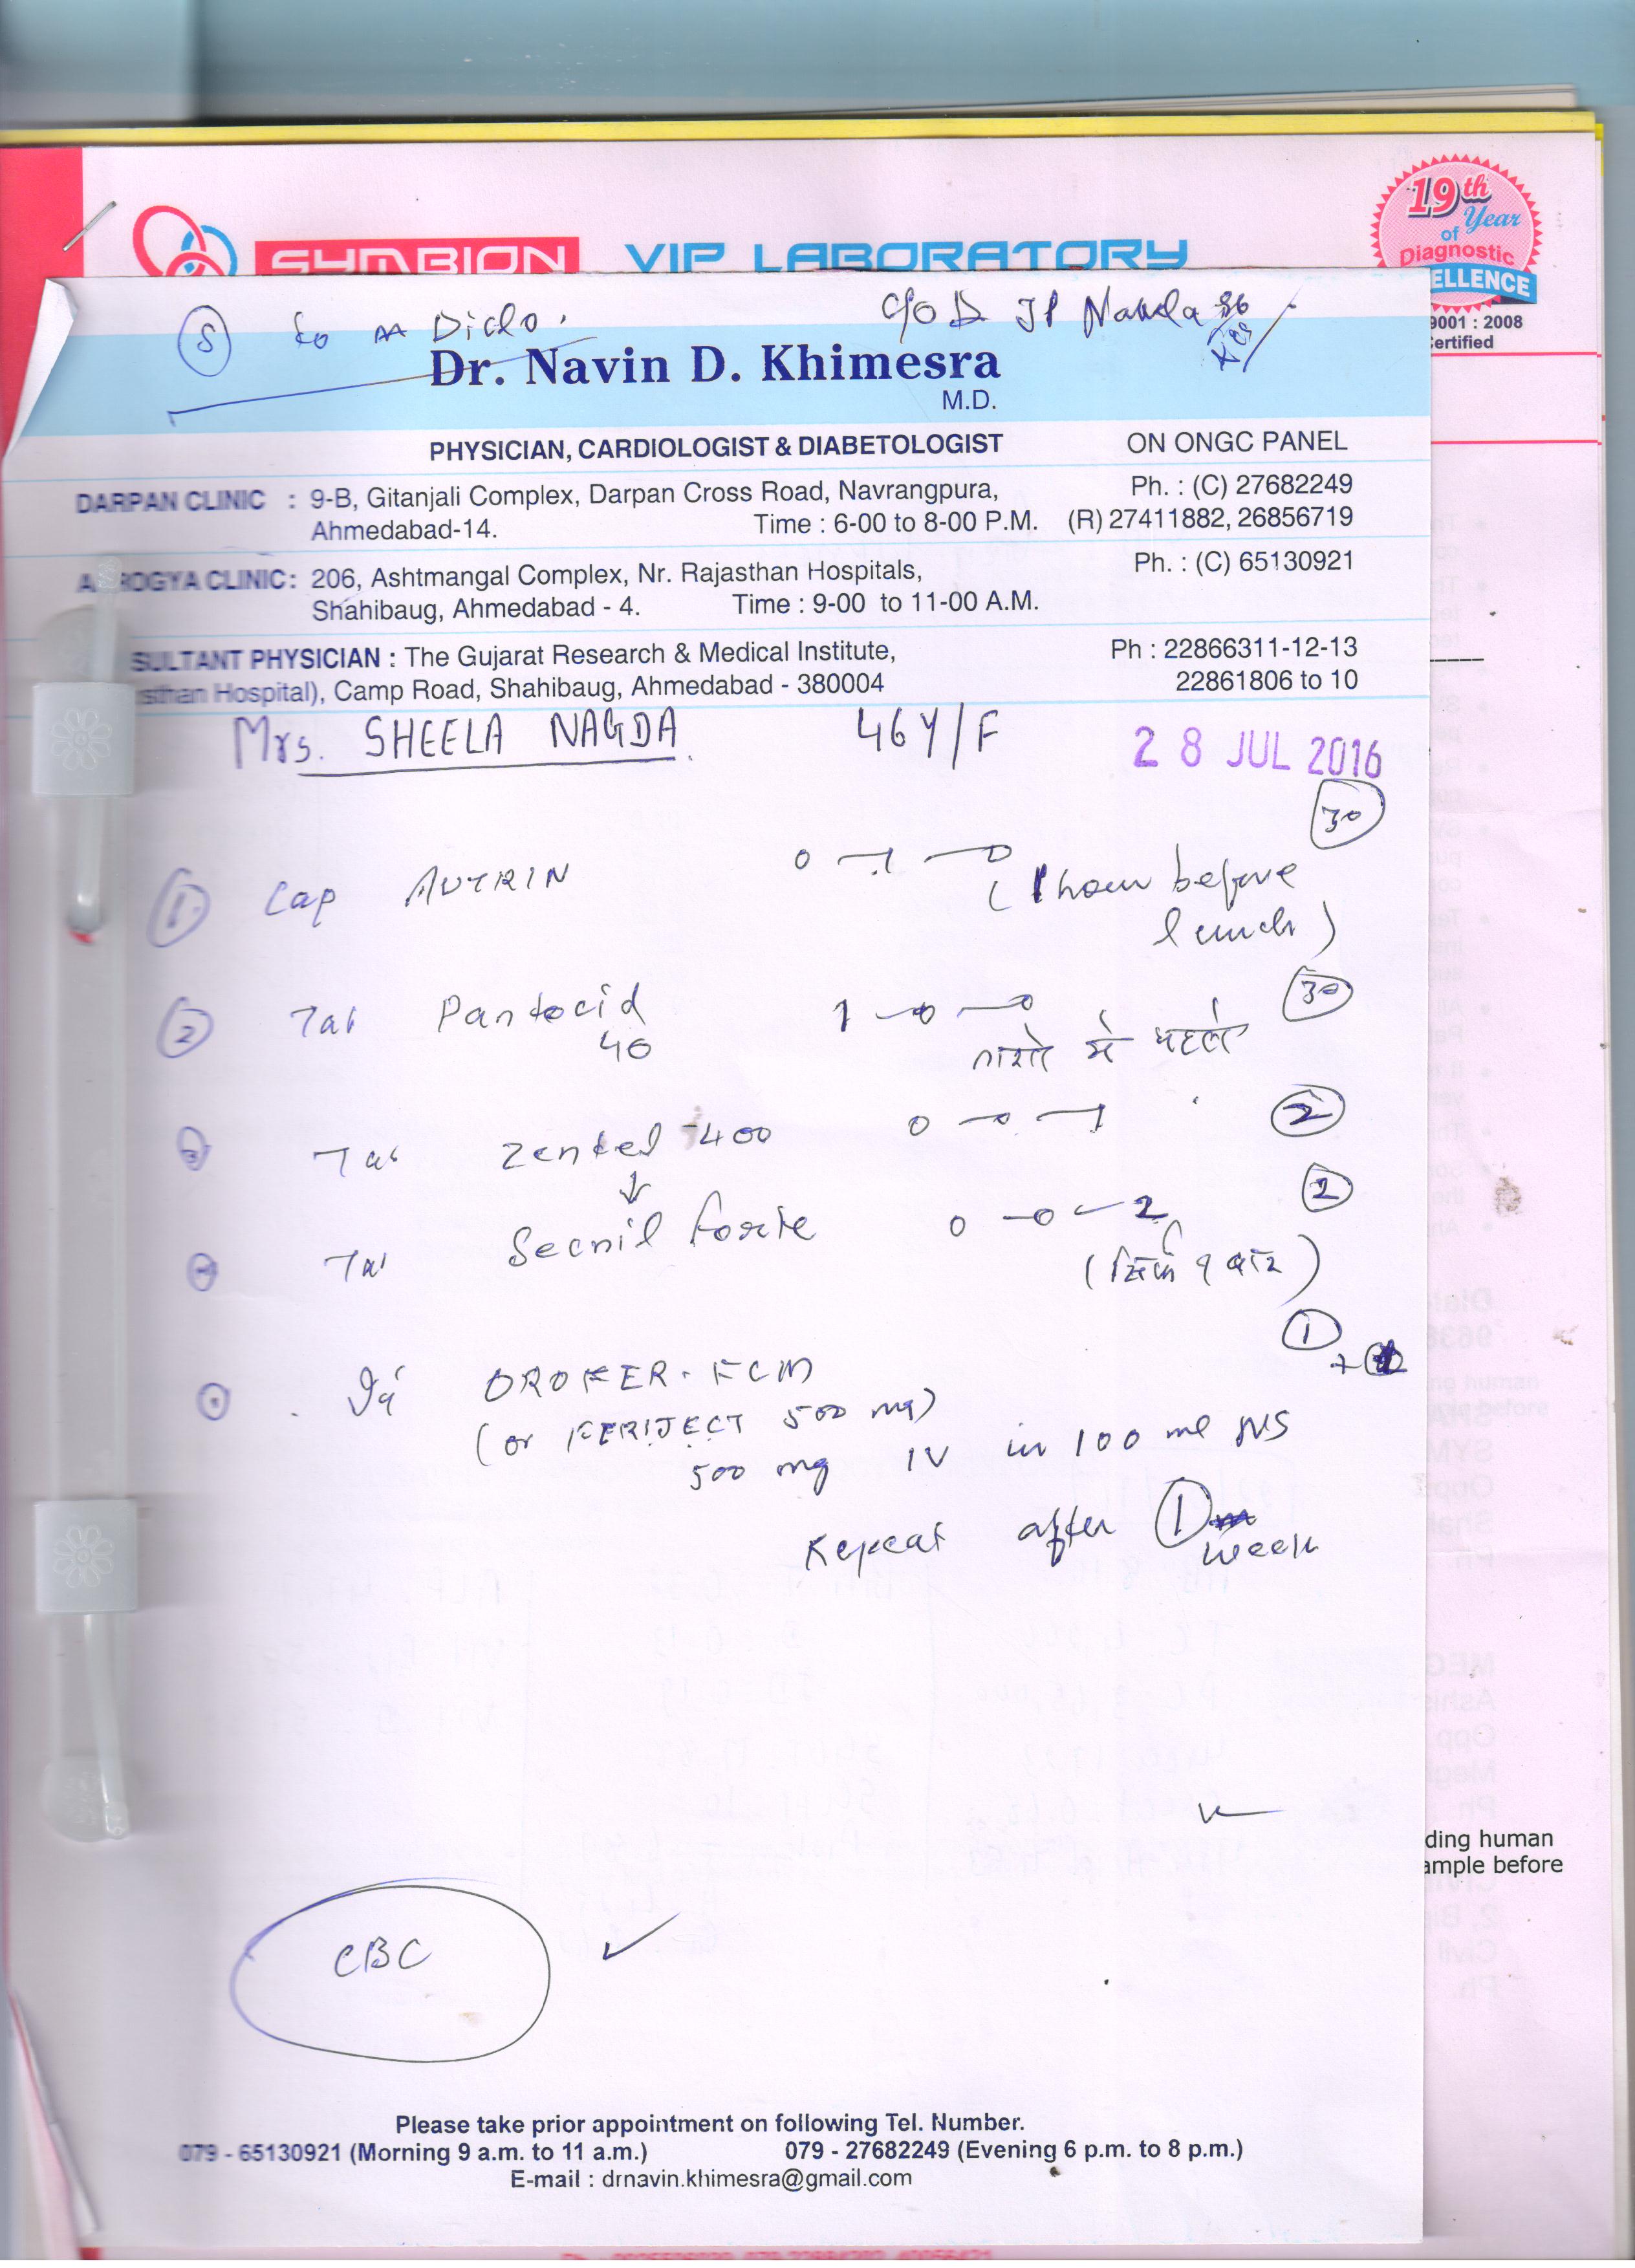 SYMBION VIP LABORATORY
19th
Year
of
Diagnostic
ELLENCE
9001 : 2008
ertified
S to Diclo. C/o JP
Dr. Navin D. Khimesra
M.D.
PHYSICIAN, CARDIOLOGIST & DIABETOLOGIST ON ONGC PANEL
DARPAN CLINIC : 9-B, Gitanjali Complex, Darpan Cross Road, Navrangpura, Ph. : (C) 27682249
Ahmedabad-14. Time : 6-00 to 8-00 P.M. (R) 27411882, 26856719
ROGYA CLINIC: 206, Ashtmangal Complex, Nr. Rajasthan Hospitals, Ph. : (C) 65130921
Shahibaug, Ahmedabad - 4. Time : 9-00 to 11-00 A.M.
SULTANT PHYSICIAN : The Gujarat Research & Medical Institute, Ph : 22866311-12-13
sthan Hospital), Camp Road, Shahibaug, Ahmedabad - 380004 22861806 to 10
Mrs. SHEELA NAGDA 46Y/F 28 JUL 2016
30
1 Cap AUTRIN 0-1-0
(1 hour before
lunch)
2 Tab Pantocid 1-0-0 30
40 नाश्ते से पहले
3 Tab Zentel-400 0-0-1 2
↓
Tab Secnil forte 0-0-2 2
(सिर्फ १ बार)
Inj OROFER-FCM 1
(or FERIJECT 500 mg)
500 mg IV in 100 ml NS
Repeat after 1
week
CBC ✓
ding human
ample before
Please take prior appointment on following Tel. Number.
079 - 65130921 (Morning 9 a.m. to 11 a.m.) 079 - 27682249 (Evening 6 p.m. to 8 p.m.)
E-mail : drnavin.khimesra@gmail.com